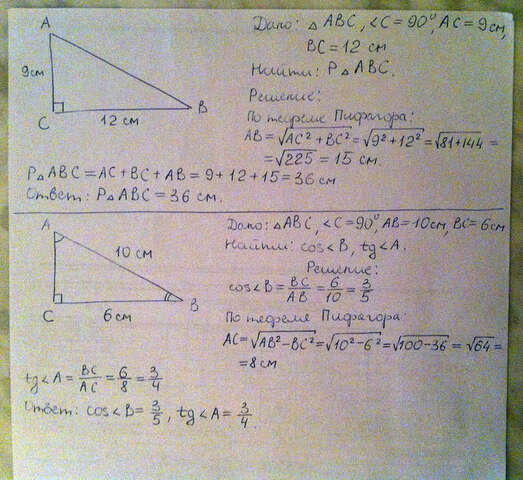 Дано: △ABC, ∠C=90°, AC=9см,
BC=12 см
Найти: P△ABC.
Решение:
По теореме Пифагора:
AB=√AC²+BC²=√9²+12²=√81+144=
=√225=15 см.
A
9см
C
12 см
B
P△ABC=AC+BC+AB=9+12+15=36 см
Ответ: P△ABC=36 см.
Дано: △ABC, ∠C=90°, AB=10см, BC=6см
Найти: cos∠B, tg∠A.
Решение:
cos∠B=BC/AB=6/10=3/5
По теореме Пифагора:
AC=√AB²-BC²=√10²-6²=√100-36=√64=
=8см
A
10 см
C
6 см
B
tg∠A=BC/AC=6/8=3/4
Ответ: cos∠B=3/5, tg∠A=3/4.